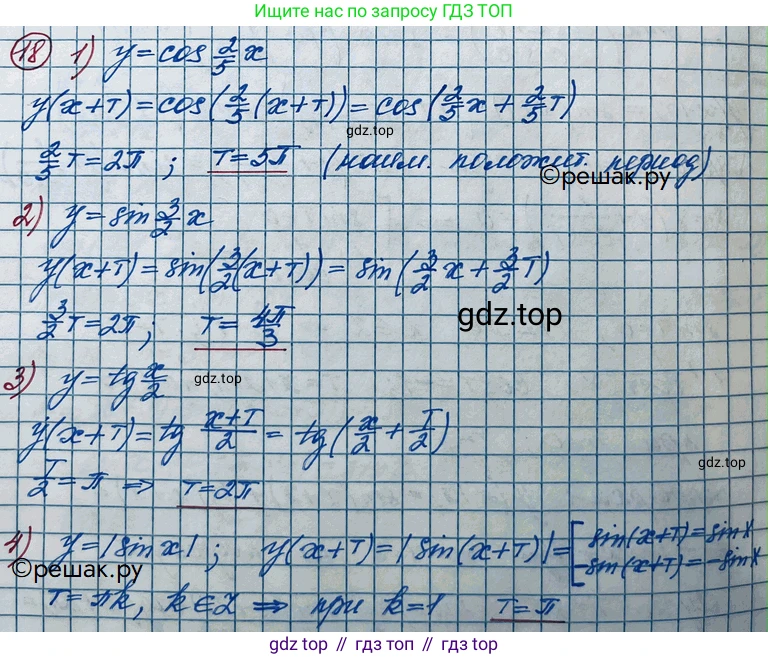 Ищите нас по запросу ГДЗ ТОП
18 1) y = cos 2/5 x
y(x+T) = cos(2/5(x+T)) = cos(2/5x + 2/5T)
gdz.top
2/5T = 2π ; T = 5π (наим. положит. период)
©решак.ру
2) y = sin 3/2 x
y(x+T) = sin(3/2(x+T)) = sin(3/2x + 3/2T)
3/2T = 2π; T = 4π/3
gdz.top
3) y = tg x/2
gdz.top
y(x+T) = tg x+T/2 = tg(x/2 + T/2)
gdz.top
T/2 = π ⇒ T = 2π
4) y = |sin x| ; y(x+T) = |sin(x+T)| = [sin(x+T) = sin x
-sin(x+T) = -sin x
©решак.ру
T = πk, k ∈ Z ⇒ при k = 1 T = π
gdz top // гдз топ // gdz.top